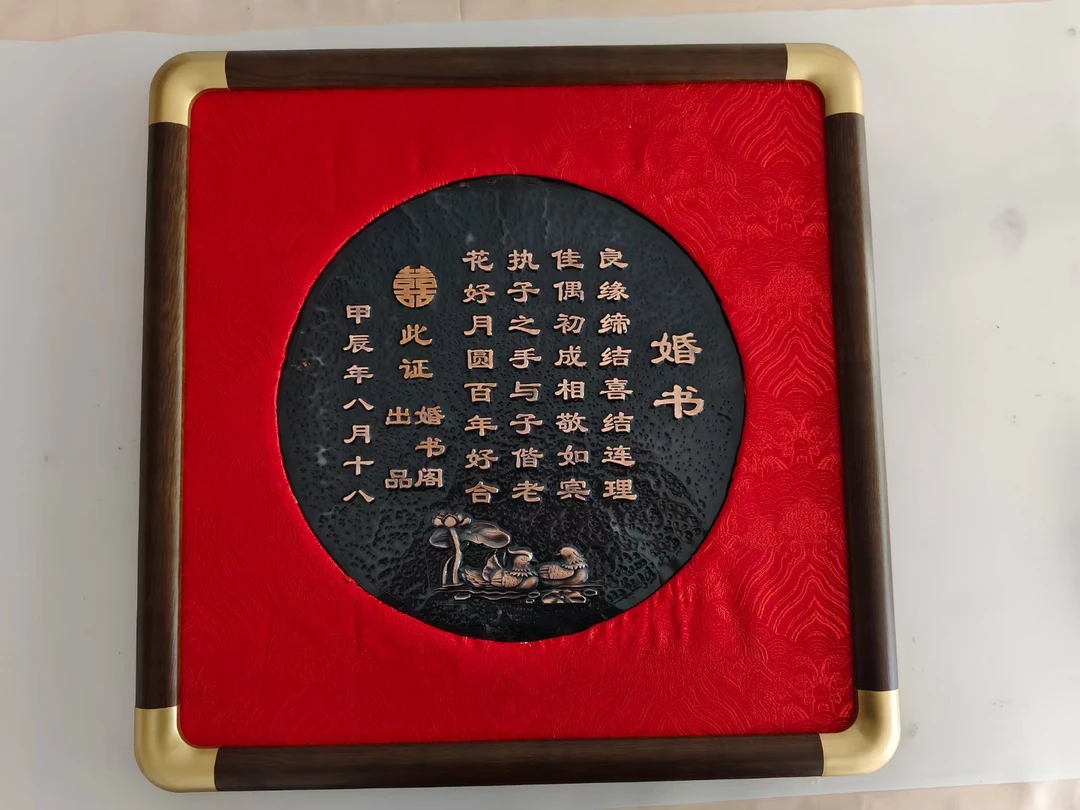 婚书
良缘缔结喜结连理
佳偶初成相敬如宾
执子之手与子偕老
花好月圆百年好合
囍
此证
婚书阁
出品
甲辰年八月十八